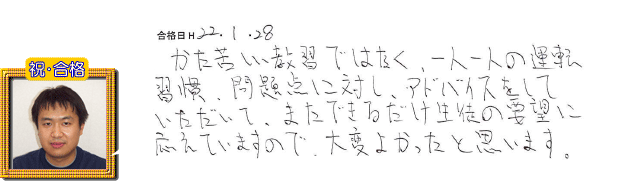 合格日 H 22.1.28
祝・合格
かた苦しい教習ではなく、一人一人の運転
習慣、問題点に対し、アドバイスをして
いただいて、またできるだけ生徒の要望に
応えていますので、大変よかったと思います。